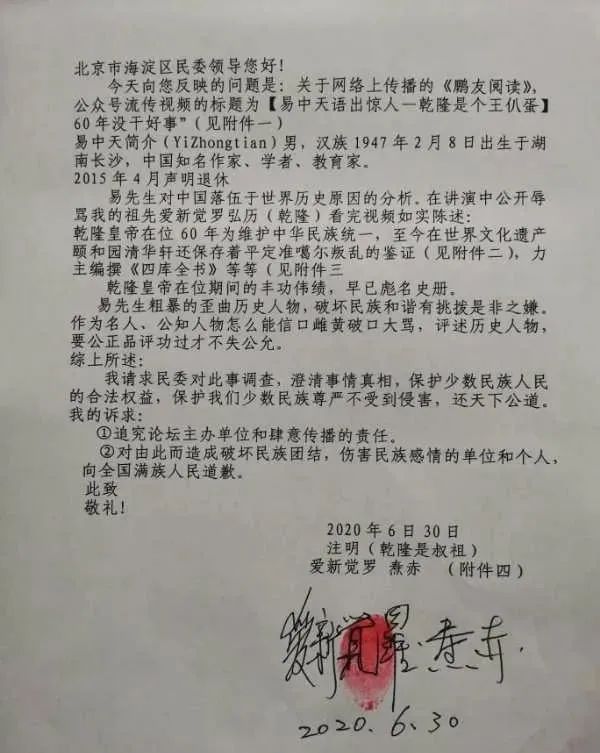 北京市海淀区民委领导您好！
今天向您反映的问题是：关于网络上传播的《鹏友阅读》，
公众号流传视频的标题为【易中天语出惊人—乾隆是个王仈蛋】
60年没干好事”（见附件一）
易中天简介（YiZhongtian）男，汉族1947年2月8日出生于湖
南长沙，中国知名作家、学者、教育家。
2015年4月声明退休
易先生对中国落伍于世界历史原因的分析。在讲演中公开辱
骂我的祖先爱新觉罗弘历（乾隆）看完视频如实陈述：
乾隆皇帝在位60年为维护中华民族统一，至今在世界文化遗产
颐和园清华轩还保存着平定准噶尔叛乱的鉴证（见附件二），力
主编撰《四库全书》等等（见附件三
乾隆皇帝在位期间的丰功伟绩，早已彪名史册。
易先生粗暴的歪曲历史人物，破坏民族和谐有挑拨是非之嫌。
作为名人、公知人物怎么能信口雌黄破口大骂，评述历史人物，
要公正品评功过才不失公允。
综上所述：
我请求民委对此事调查，澄清事情真相，保护少数民族人民
的合法权益，保护我们少数民族尊严不受到侵害，还天下公道。
我的诉求：
①追究论坛主办单位和肆意传播的责任。
②对由此而造成破坏民族团结，伤害民族感情的单位和个人，
向全国满族人民道歉。
此致
敬礼！
2020年6月30日
注明（乾隆是叔祖）
爱新觉罗 焘赤 （附件四）
爱新觉罗·焘赤.
2020.6.30